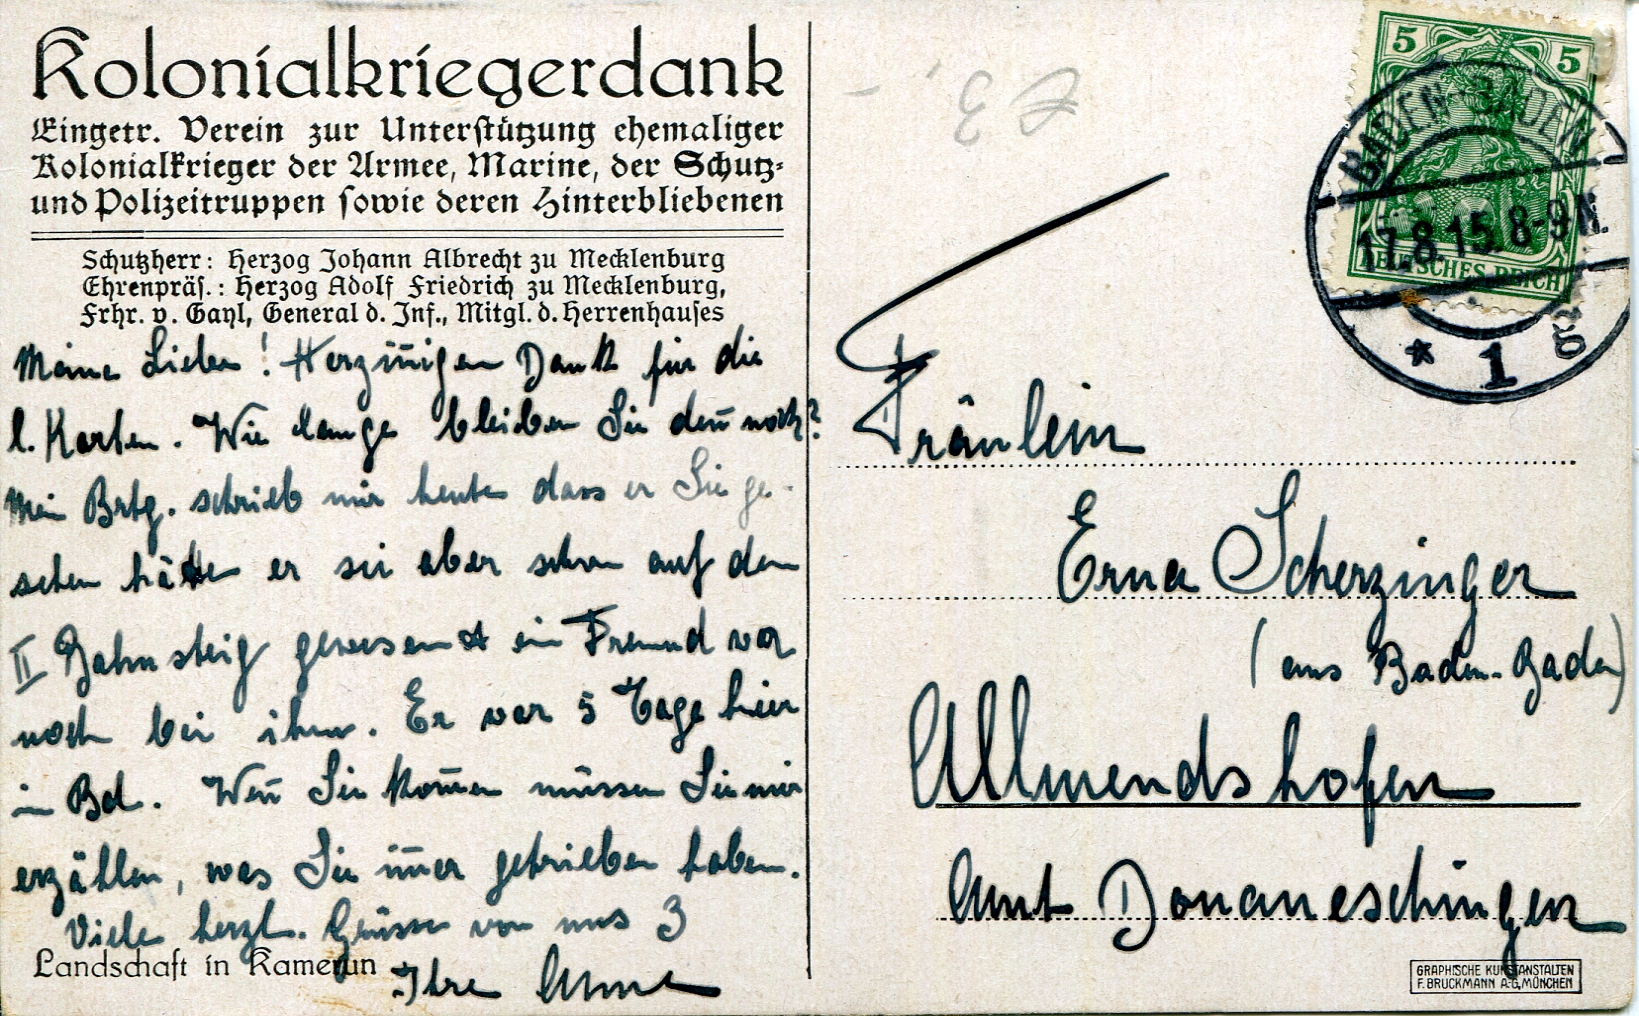 Kolonialkriegerdank
Eingetr. Verein zur Unterstützung ehemaliger
Kolonialkrieger der Armee, Marine, der Schutz-
und Polizeitruppen sowie deren Hinterbliebenen
Schutzherr: Herzog Johann Albrecht zu Mecklenburg
Ehrenpräs.: Herzog Adolf Friedrich zu Mecklenburg,
Frhr. v. Gayl, General d. Inf., Mitgl. d. Herrenhauses
Meine Lieben! Herzinnigen Dank für die
l. Karten. Wie lange bleiben Sie deñ noch?
Mein Brtg. schrieb mir heute dass er Sie ge-
sehen hätte er sei aber schon auf dem
II Bahnsteig gewesen ein Freund war
noch bei ihm. Er war 5 Tage hier
in Bd. Weñ Sie kom̅en müssen Sie mir
erzählen, was Sie im̅er getrieben haben.
Viele herzl. Grüsse von uns 3
Ihre Anna
Landschaft in Kamerun
3
5 5
DEUTSCHES REICH
BADEN-BADEN
17.8.15. 8-9 N.
* 1 g
Fräulein
Erna Scherzinger
(aus Baden-Baden)
Allmendshofen
Amt Donaueschingen
GRAPHISCHE KUNSTANSTALTEN
F. BRUCKMANN A.G, MÜNCHEN